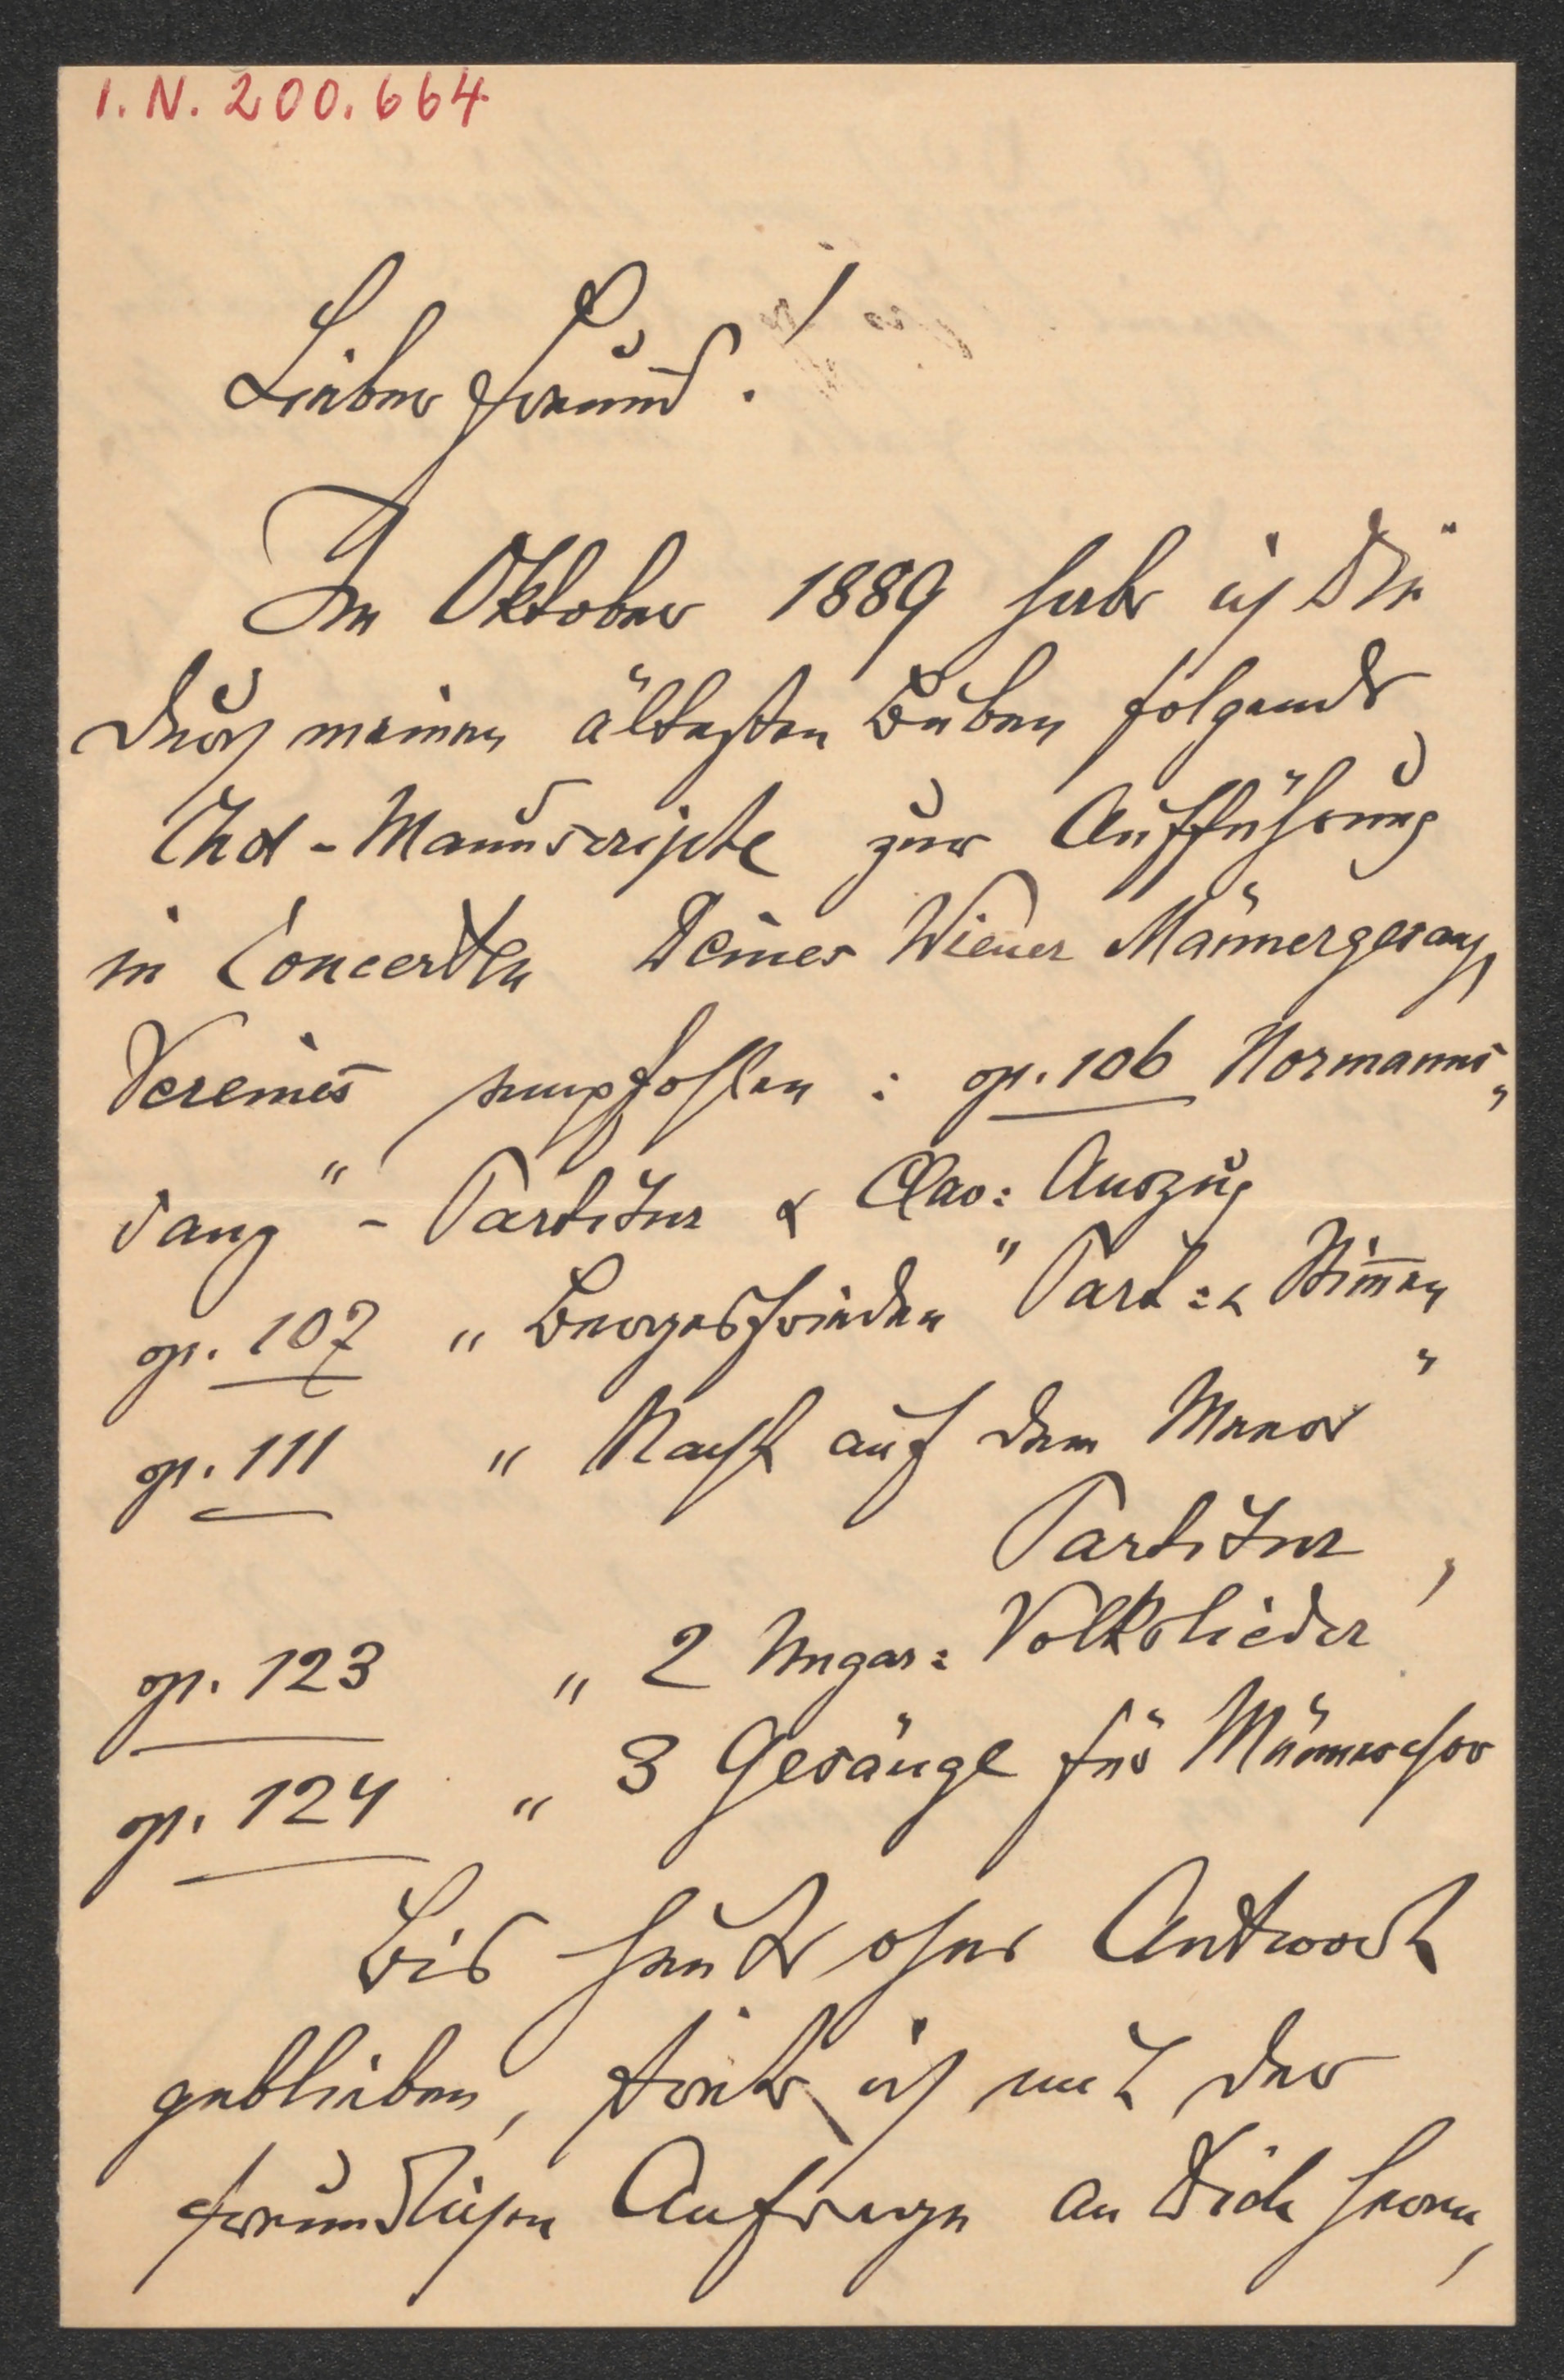 I. N. 200.664
Lieber Freund!
Im Oktober 1889 habe ich Dir
durch meinen ältesten Buben folgende
Chor-Manuscripte zur Aufführung
in Concerten Deines Wiener Männergesang
Vereines empfohlen: op. 106 Normanns„
sang" - Partitur & Clav: Auszug
op. 107 „Bergesfrieden" Part: & Stim̅en
op. 111 „Nacht auf dem Meer"
Partitur,
op. 123 „ 2 Ungar: Volkslieder
op. 124 „ 3 Gesänge für Männerchor
Bis heute ohne Antwort
geblieben, trete ich mit der
freundlichen Anfrage an Dich heran,